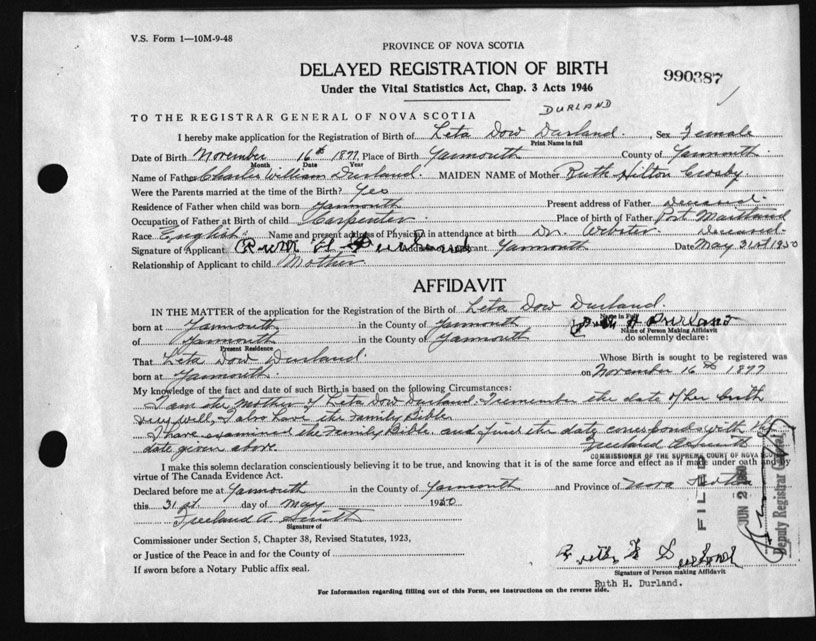 V.S. Form 1—10M-9-48
PROVINCE OF NOVA SCOTIA
DELAYED REGISTRATION OF BIRTH
990387
Under the Vital Statistics Act, Chap. 3 Acts 1946
DURLAND
TO THE REGISTRAR GENERAL OF NOVA SCOTIA
I hereby make application for the Registration of Birth of Leta Dow Durland. Sex Female
Print Name in full
Date of Birth November 16th 1877, Place of Birth Yarmouth County of Yarmouth.
Month Date Year
Name of Father Charles William Durland. MAIDEN NAME of Mother Ruth Hilton Crosby
Were the Parents married at the time of the Birth? Yes
Residence of Father when child was born Yarmouth Present address of Father Deceased.
Occupation of Father at Birth of child Carpenter. Place of birth of Father Port Maitland
Race English. Name and present address of Physician in attendance at birth Dr. Webster. Deceased.
Signature of Applicant Ruth H Durland Yarmouth Date May 31st 1950
Relationship of Applicant to child Mother
AFFIDAVIT
IN THE MATTER of the application for the Registration of the Birth of Leta Dow Durland.
born at Yarmouth in the County of Yarmouth Ruth H Durland
Name in Full
Name of Person Making Affidavit
of Yarmouth in the County of Yarmouth do solemnly declare:
Present Residence
That Leta Dow Durland. Whose Birth is sought to be registered was
born at Yarmouth. on November 16th 1877
My knowledge of the fact and date of such Birth is based on the following Circumstances:
I am the Mother of Leta Dow Durland. I remember the date of her birth
very well, I also have the Family Bible
I have examined the Family Bible and find the date corresponds with the
date given above. Freeland A. Smith
COMMISSIONER OF THE SUPREME COURT OF NOVA
I make this solemn declaration conscientiously believing it to be true, and knowing that it is of the same force and effect as if made under oath and by
virtue of The Canada Evidence Act.
Declared before me at Yarmouth in the County of Yarmouth and Province of Nova Scotia
this 31st. day of May 1950
Freeland A. Smith
Signature of
Commissioner under Section 5, Chapter 38, Revised Statutes, 1923,
or Justice of the Peace in and for the County of
If sworn before a Notary Public affix seal.
Ruth H Durland
Signature of Person making Affidavit
Ruth H. Durland.
For Information regarding filling out of this Form, see Instructions on the reverse side.
FILED
JUN 2
Deputy Registrar General